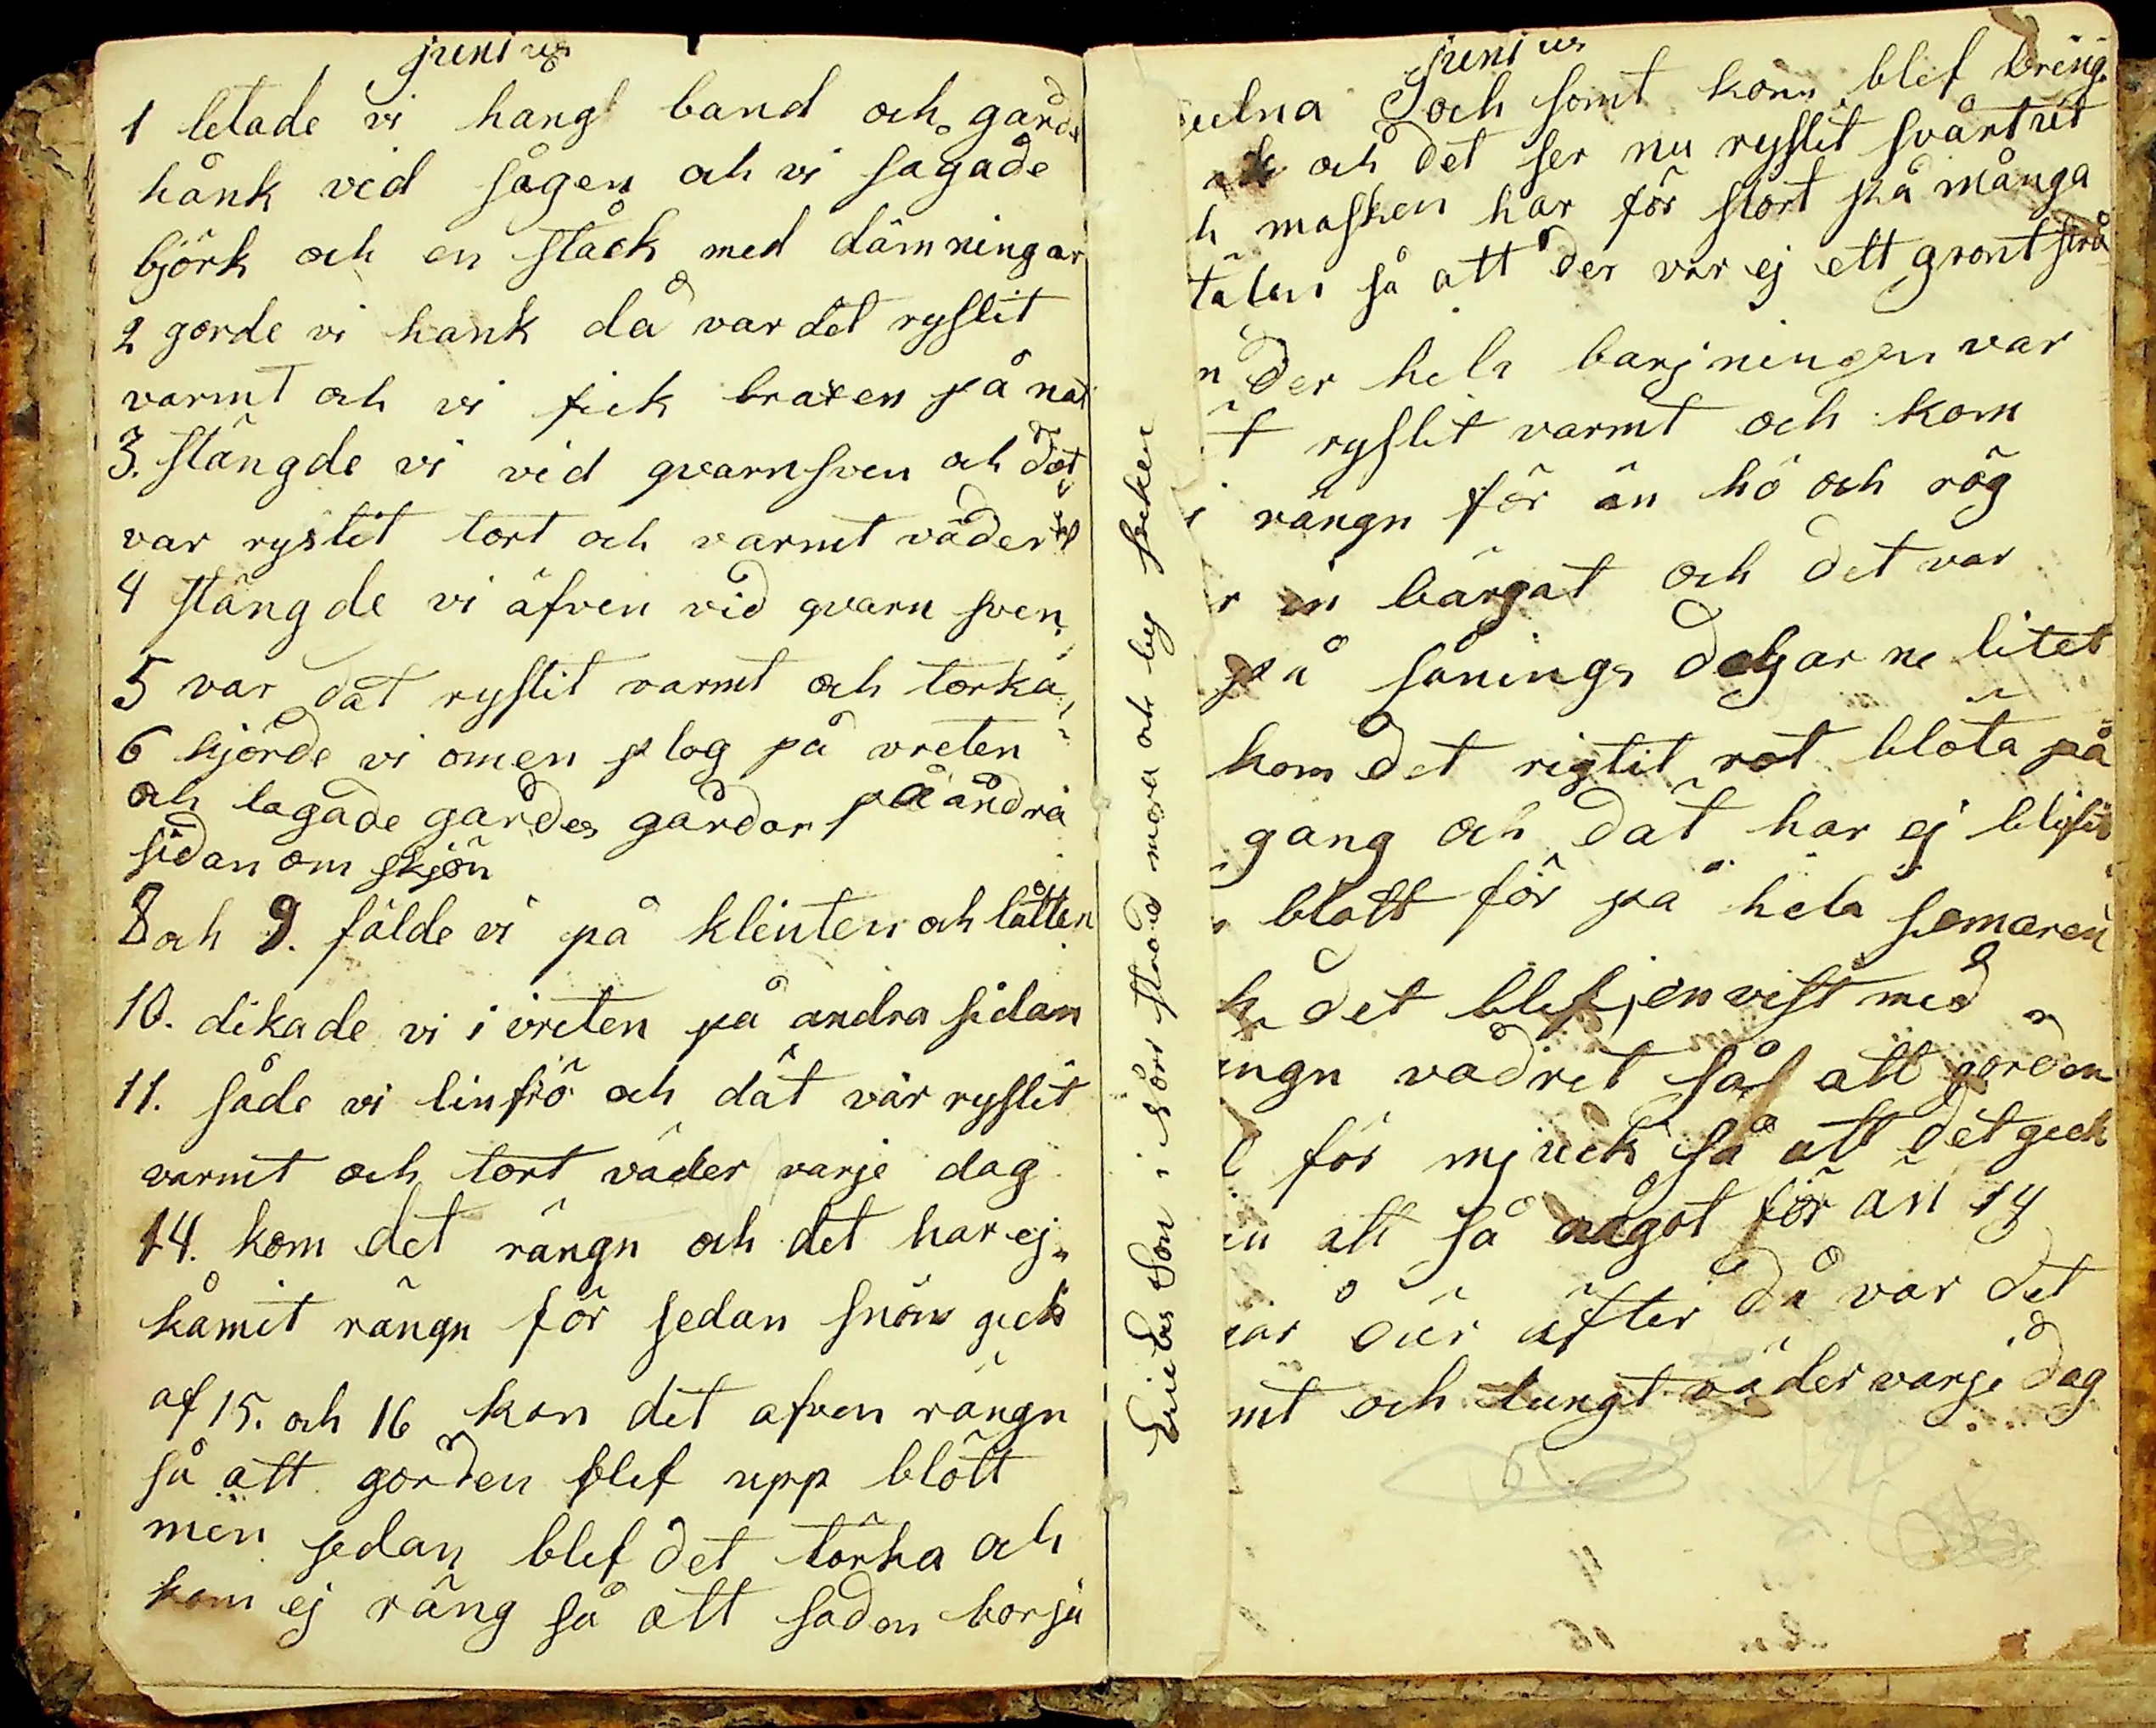 junius
1 letade vi hangl band och gards
hånk vid sågen och vi sågade
björk och en ståck med dämningar
2 gorde vi hank då var det ryslit
varmt och vi fick braxen på nat
3. stängde vi vid qvarnsven och dät
var ryslit tort och varmt väder
4 stängde vi äfven vid qvarn sven
5 var dät ryslit varmt och torka
6 kjörde vi omen plog på vreten
och lagade gardes gårdar på andra
sidan om skjön
8 och 9. fälde vi på klinten och låtten
10. dikade vi i vreten på andra sidan
11. såde vi linfrö och dät var ryslit
varmt och tort väder varje dag
14. kom det rängn och det har ej
kåmit rängn för sedan snön gick
af 15. och 16 kom det äfven rängn
så att jorden blef upp blött
men sedan blef det törka och
kom ej räng så att saden borja
Ericks Son i Norr staa med mora och by socken
junius
gulna och somt korn blef bring
och det ser nu ryslit svårt ut
h masken har för stort på många
tälen så att der var ej ett gront strå
n der hela barjningen var
t ryslit varmt och kom
i rängn för än hö och rög
r in bärgat och det var
på sånings delgarne litet
kom det rigtit rot blöta på
gang och dät har ej blifit
blött för på hela somaren
h det blef jenvist med
ängn vädret så att jorden
för mjuck så att det geck
en att så något för än 14
gar ôur äfter då var det
mt och tungt väder varje dag